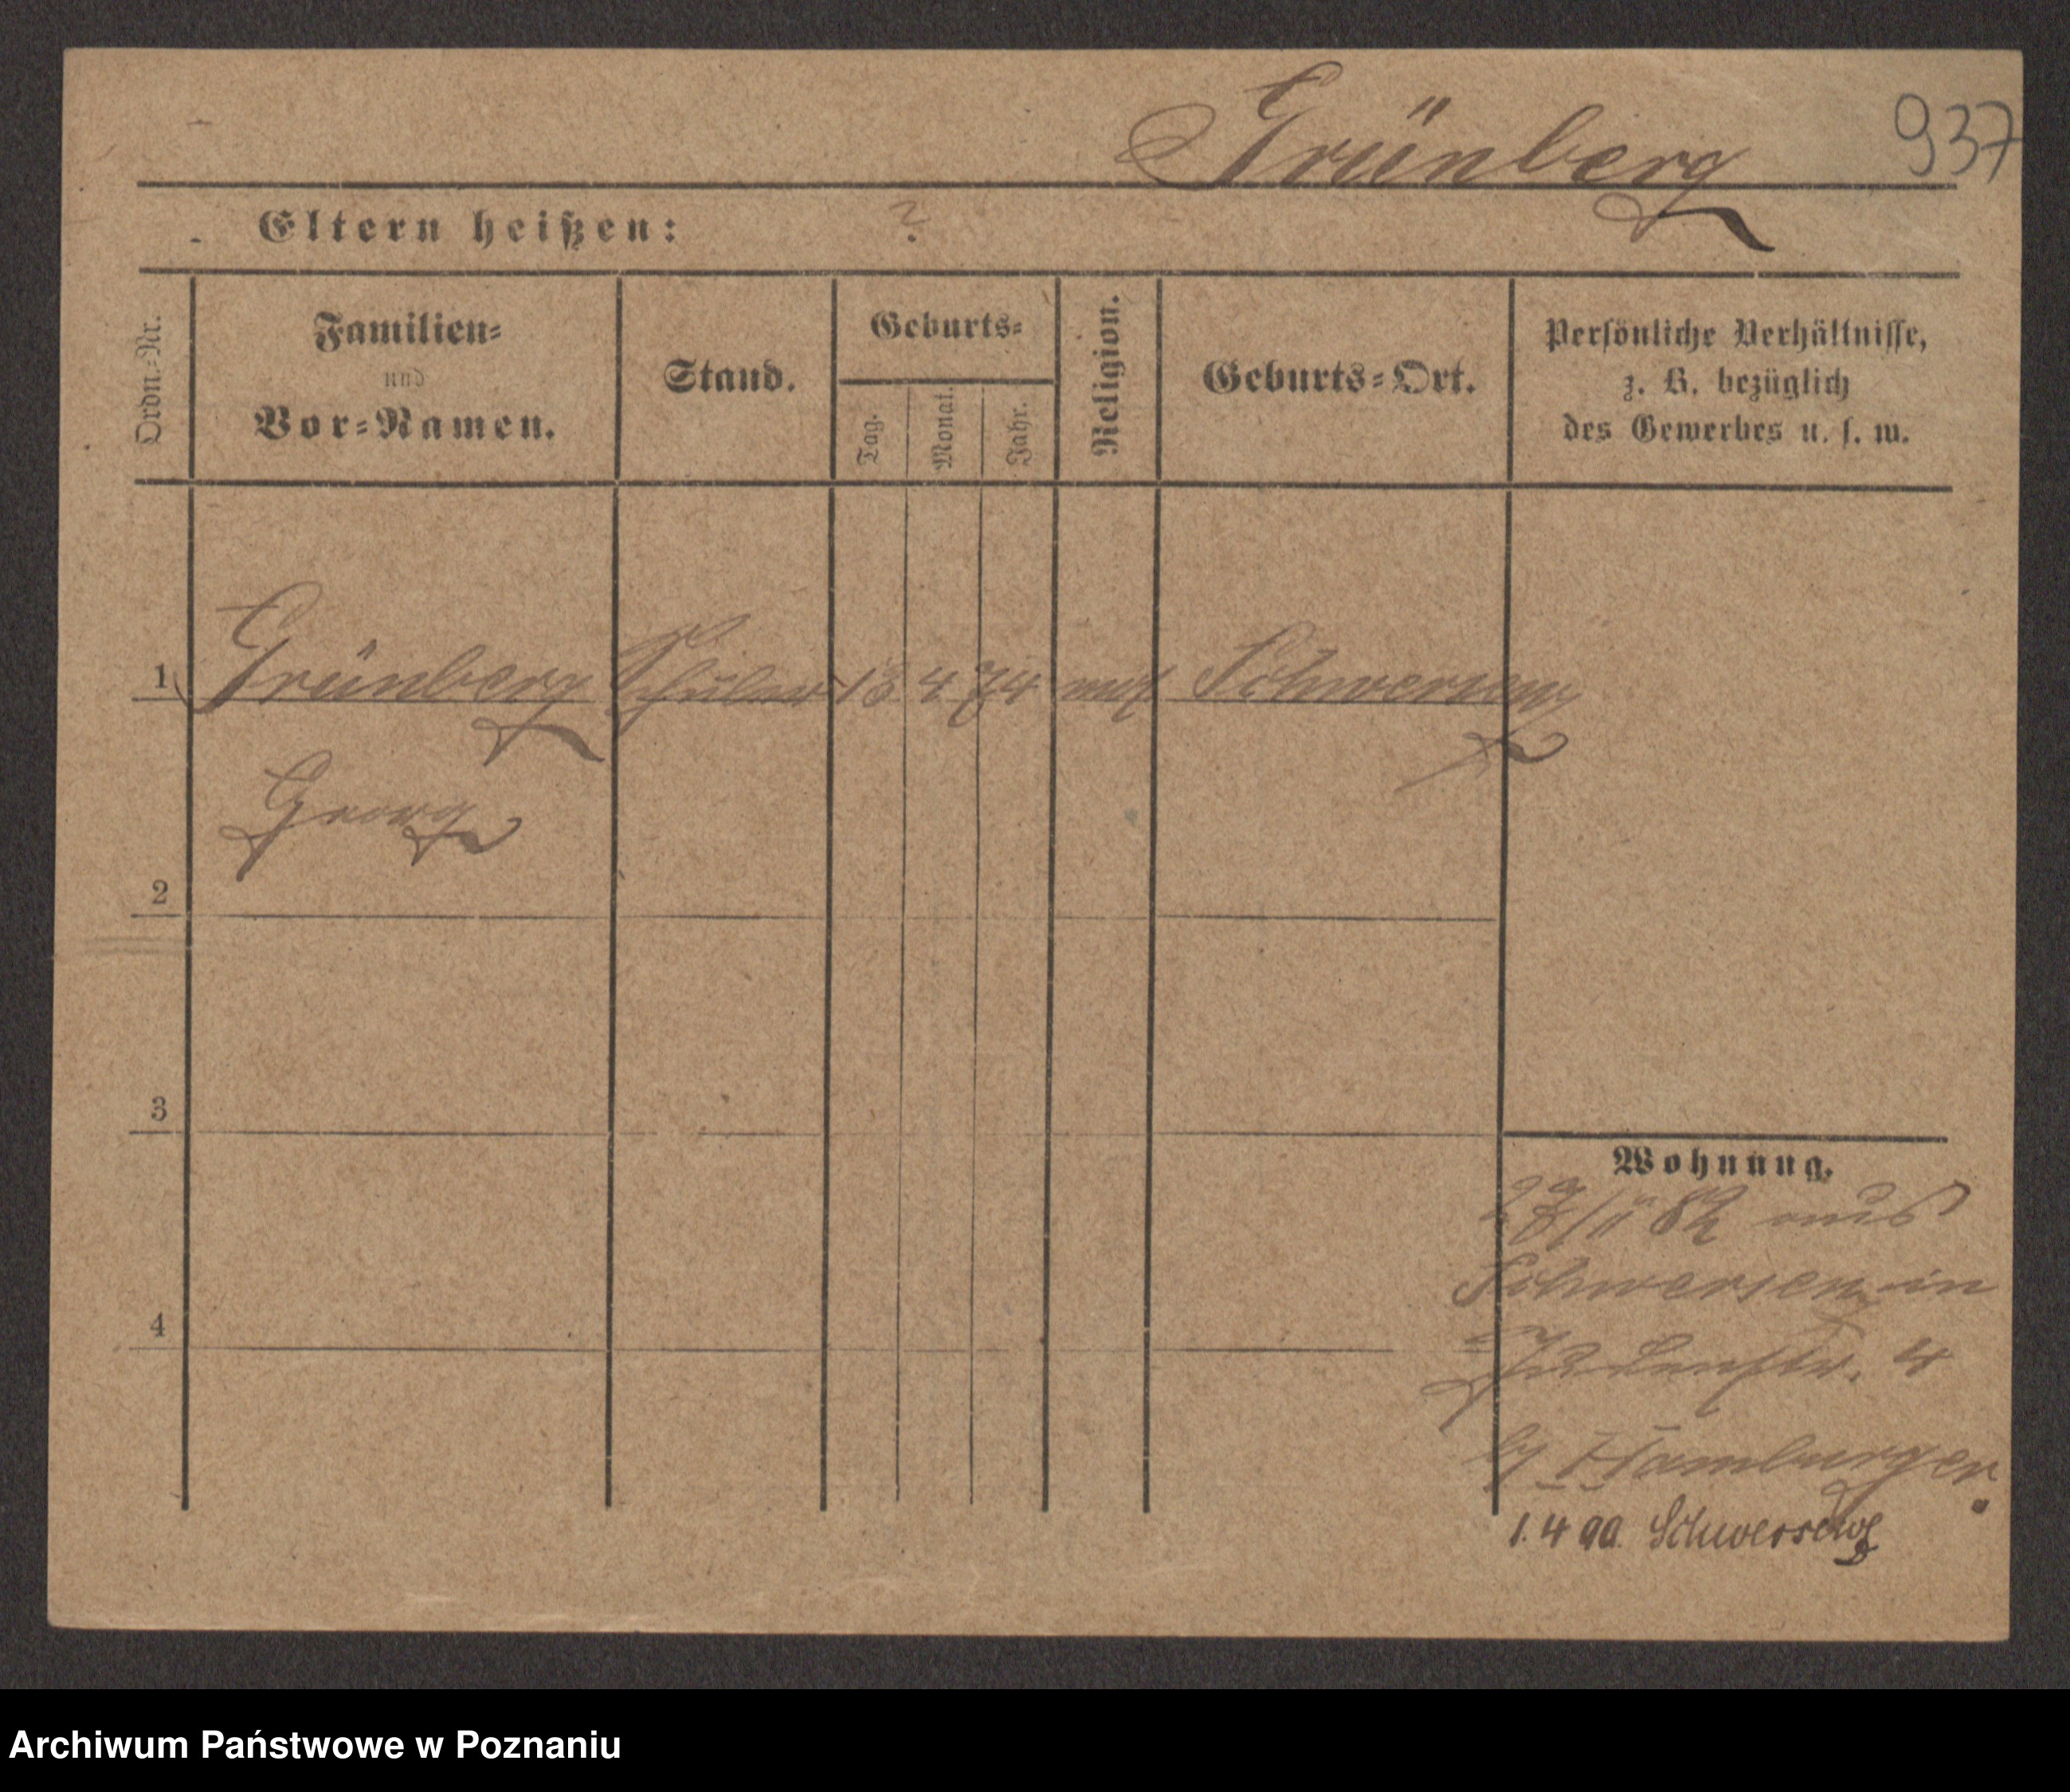 Grünberg 937
Eltern heißen: ?
Ordn.-Nr.
Familien-
und
Vor-Namen.
Stand.
Geburts-
Tag.
Monat.
Jahr.
Religion.
Geburts-Ort.
Persönliche Verhältnisse,
z. B. bezüglich
des Gewerbes u. s. w.
1 Grünberg Schüler 13 4 74 mos Schwersenz
Georg
2
3
4
Wohnung.
82 aus
Schwersenz in
Judenstr. 4
b/ Hamburger.
1. 4 90. Schwersenz
Archiwum Państwowe w Poznaniu